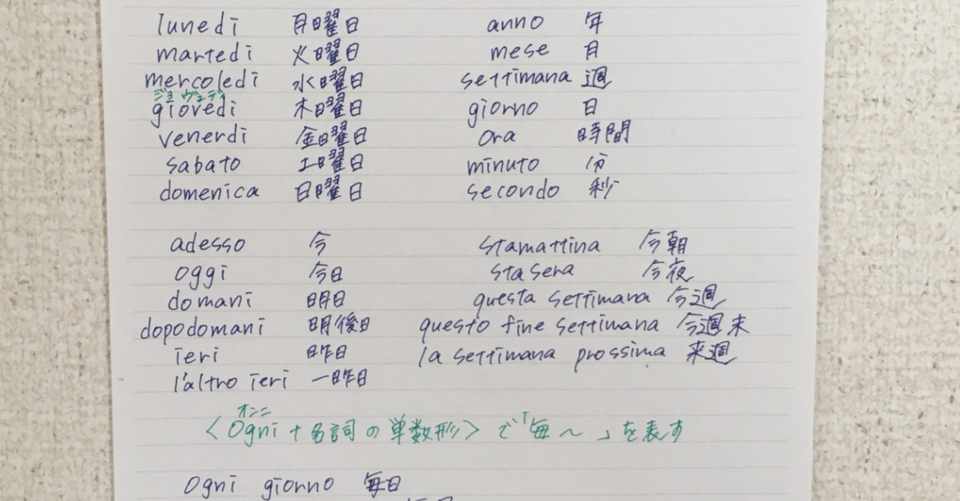 lunedì 月曜日 anno 年
martedì 火曜日 mese 月
mercoledì 水曜日 settimana 週
ジョヴェディ
giovedì 木曜日 giorno 日
venerdì 金曜日 ora 時間
sabato 土曜日 minuto 分
domenica 日曜日 secondo 秒
adesso 今 stamattina 今朝
oggi 今日 stasera 今夜
domani 明日 questa settimana 今週
dopodomani 明後日 questo fine settimana 今週末
ieri 昨日 la settimana prossima 来週
l'altro ieri 一昨日
オンニ
〈Ogni + 名詞の単数形〉で「毎〜」を表す
Ogni giorno 毎日